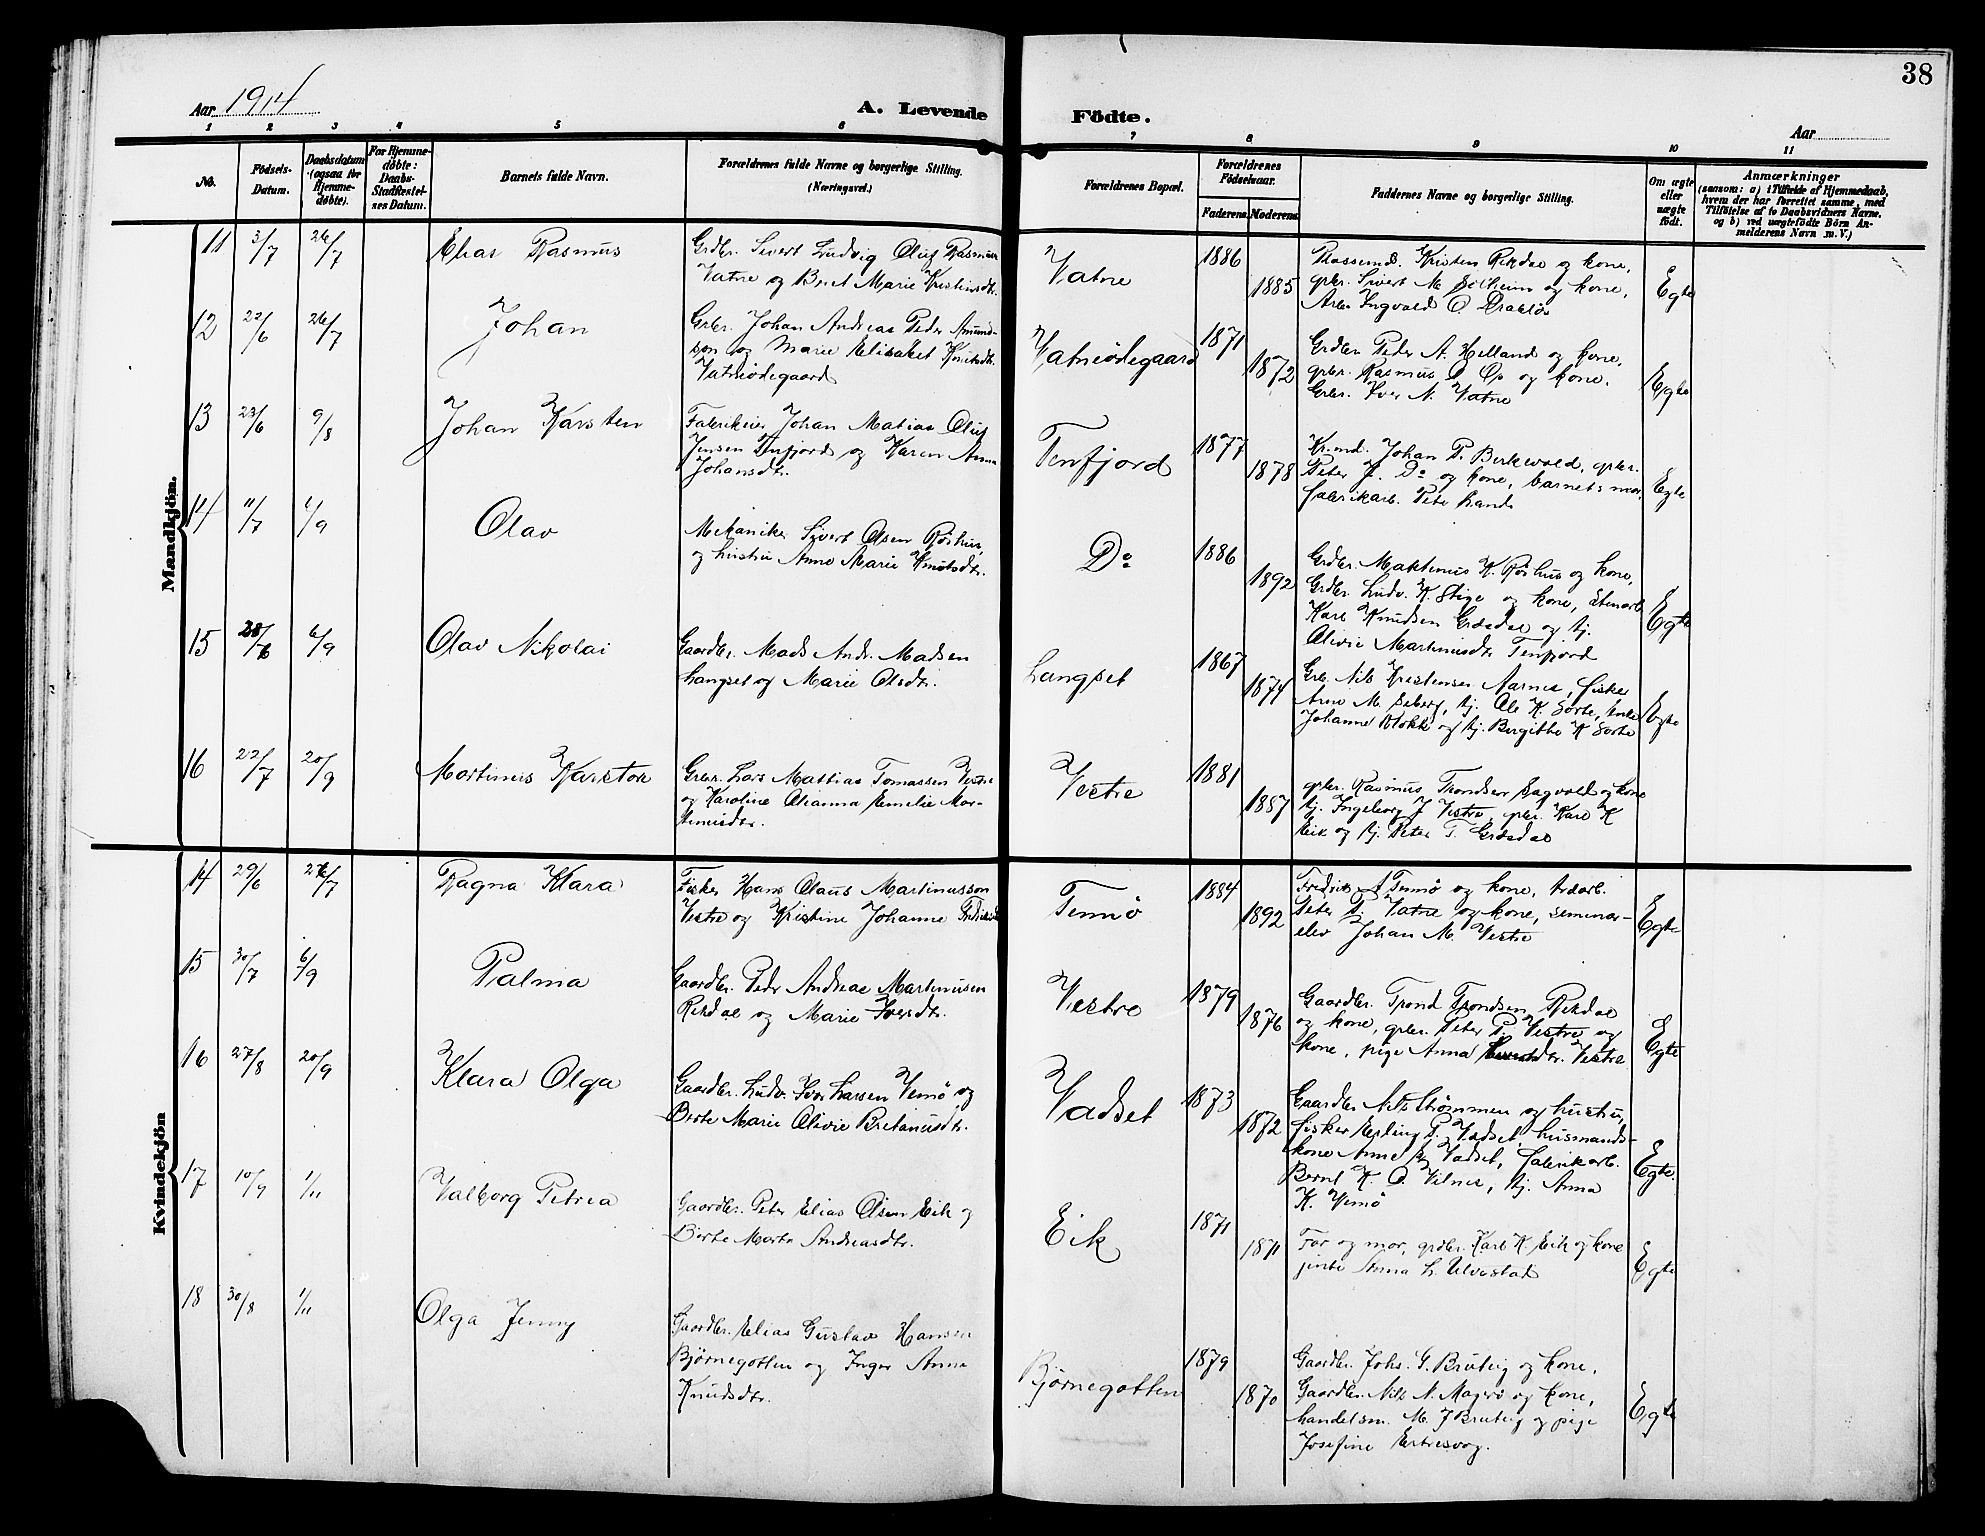 38
Aar 1914
A. Levende Födte.
Aar
1 2 3 4 5 6 7 8 9 10 11
No.
Födsels-
Datum.
Daabsdatum
(ogsaa for
Hjemme-
döbte).
For Hjemme-
döbte:
Daabs-
Stadfæstel-
ses Datum.
Barnets fulde Navn.
Forældrenes fulde Navne og borgerlige Stilling.
(Næringsvei.)
Forældrenes Bopæl.
Forældrenes
Födselsaar.
Faderens. Moderens.
Faddernes Navne og borgerlige Stilling.
Om ægte
eller
uægte
födt.
Anmærkninger
(saasom: a) i Tilfælde af Hjemmedaab,
hvem der har forrettet samme, med
Tilföielse af to Daabsvidners Navne,
og b) ved uægtefödte Börn An-
melderens Navn m. V.)
Mandkjön.
11 3/7 26/7 Elias Rasmus
Grdbr. Sivert Ludvig Oluf Rasmus
Vatne og Brit Marie Kristinsdtr.
Vatne 1886 1885
Kristen Rekdal og kone,
gbr. Sivert M. Solheim og kone,
Arbr Ingvald O.
Egte
12 22/6 26/7 Johan
Grbr. Johan Andreas Peder Amund-
sen og Marie Elisabet Knutsdtr.
Vatneødegaard
Vatneødegaard 1871 1872
Grdbr. Peder A. Helland og kone,
gbr. Rasmus O. og kone.
Grbr. Iver N. Vatne
Egte
13 23/6 9/8 Johan Karsten
Fabrikeier Johan Matias Oluf
Jensen Tenfjord og Karen Anna
Johansdtr.
Tenfjord 1877 1878
Johan P. Birkevold, gbr.
Peter J. Do og kone, barnets mor,
fabrikarb. Peter
Egte
14 11/7 1/9 Olav
Mekaniker Sivert Olsen Røshus
og hustru Anne Marie Knutsdtr.
Do 1886 1892
Grdbr. Martinus K. Røshus og kone,
Grdbr. Ludv. K. Stige og kone, Stenarb.
Karl Knudsen Græsdal og Pj.
Olivie Martinusdtr Tenfjord
Egte
15 28/6 6/9 Olav Nikolai
Gaardbr. Mads Andr. Madsen
Langset og Marie Olsdtr.
Langset 1867 1874
Grb. Nils Kristensen Aarnes, fisker
Arne M. Seberg, Uj. Ole K. Sorte, Enke
Johanne Blokk og Pj. Bergitte K Sorte
Egte
16 22/7 20/9 Martinus Karsten
Grbr. Lars Mattias Tomassen Vestre
og Karoline Olianna Emelie Mar-
tinusdtr.
Vestre 1881 1887
gbr. Rasmus Trondsen Sagvold og kone
Pj. Ingeborg J Vestre, gbr. Karl K
Eik og Uj. Peter T. Græsdal
Kvindekjön
14 29/6 26/7 Ragna Klara
Fisker Hans Olaus Martinusson
Vestre og Kristine Johanne
Tennø 1884 1892
Fredrik A Tennø og kone, træarb.
Peter P. Vatne og kone, seminar-
elev Johan M. Vestre
Egte
15 30/7 6/9 Palma
Gaardbr. Peder Andreas Martinusen
Rekdal og Marie Iversdtr.
Vestre 1879 1876
Gaardbr. Trond Trondsen Rekdal
og kone, gbr. Peter P. Vestre og
kone, pige Anna Vestre
Egte
16 27/8 20/9 Klara Olga
Gaardbr. Ludv. Iver Larsen Vemø og
Birte Marie Olivie Bretanusdtr.
Vadset 1873 1872
Gaardbr Nils Strømmen og hustru,
fisker Erling P. Vadset, husmands-
kone Anne Vadset, fabrikarb.
Bernt K. O. Vilnes, Pj. Anna
K. Vemø
Egte.
17 10/9 1/11 Valborg Petrea
Gaardbr. Peter Elias Olsen Eik og
Birte Marta Andreasdtr.
Eik 1871 1871
Far og mor, grdbr. Karl K. Eik og kone
jente Anna L. Ulvestad
Egte
18 30/8 1/11 Olga Jenny
Gaardbr. Elias Gustav Hansen
Bjørnegotten og Inger Anna
Knudsdtr.
Bjørnegotten 1879 1870
Gaardbr. Johs. G. Bruteig og kone,
Gaardbr. Nils N. Magerø og kone,
handelsm. M. J Bruteig og pige
Josefine Estresvog.
Egte